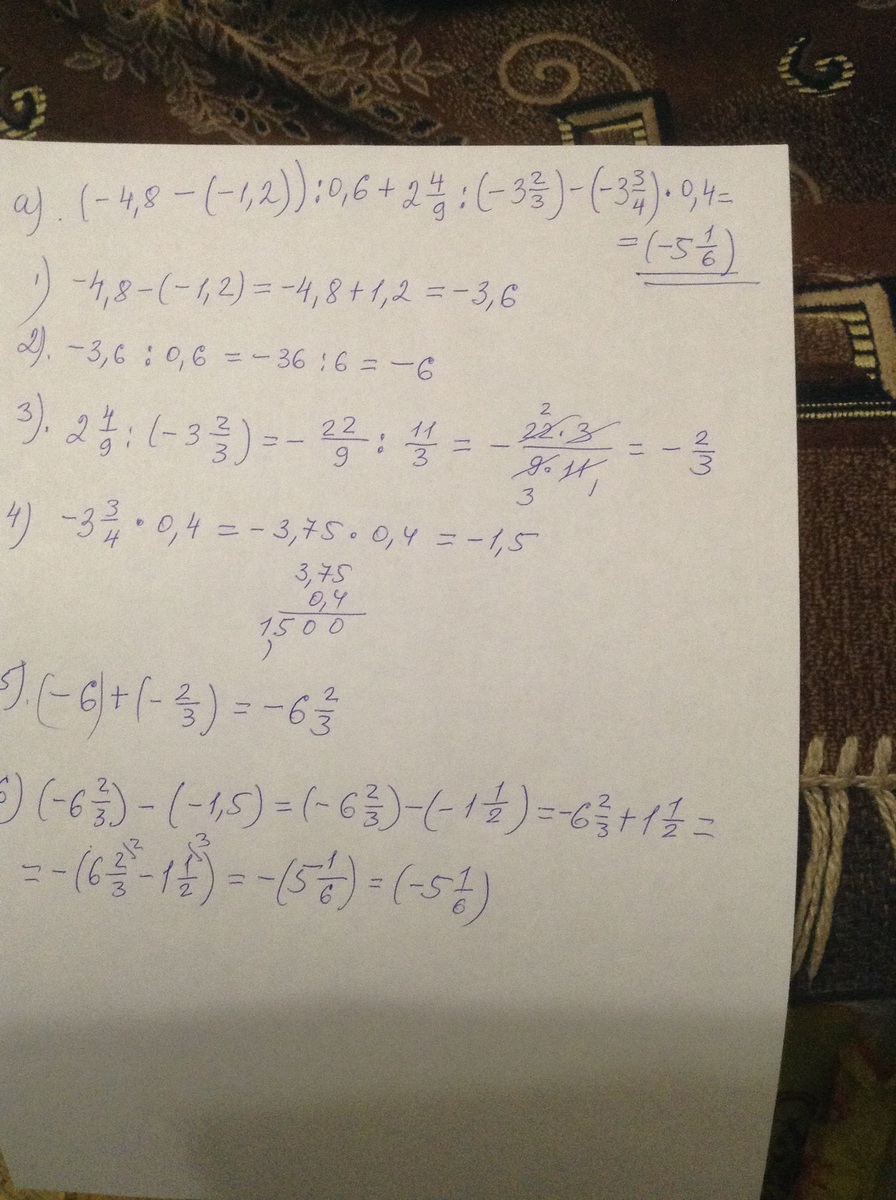 а). (-4,8-(-1,2)):0,6+2 4/9:(-3 2/3)-(-3 3/4)·0,4=
=(-5 1/6)
1) -4,8-(-1,2)=-4,8+1,2=-3,6
2). -3,6:0,6=-36:6=-6
3). 2 4/9:(-3 2/3)=-22/9:11/3=-22·3/9·11=-2/3
2
3 1
4) -3 3/4·0,4=-3,75·0,4=-1,5
3,75
0,4
1,500
5). (-6)+(-2/3)=-6 2/3
6) (-6 2/3)-(-1,5)=(-6 2/3)-(-1 1/2)=-6 2/3+1 1/2=
=-(6 2/3 \2 -1 1/2 \3)=-(5 1/6)=(-5 1/6)